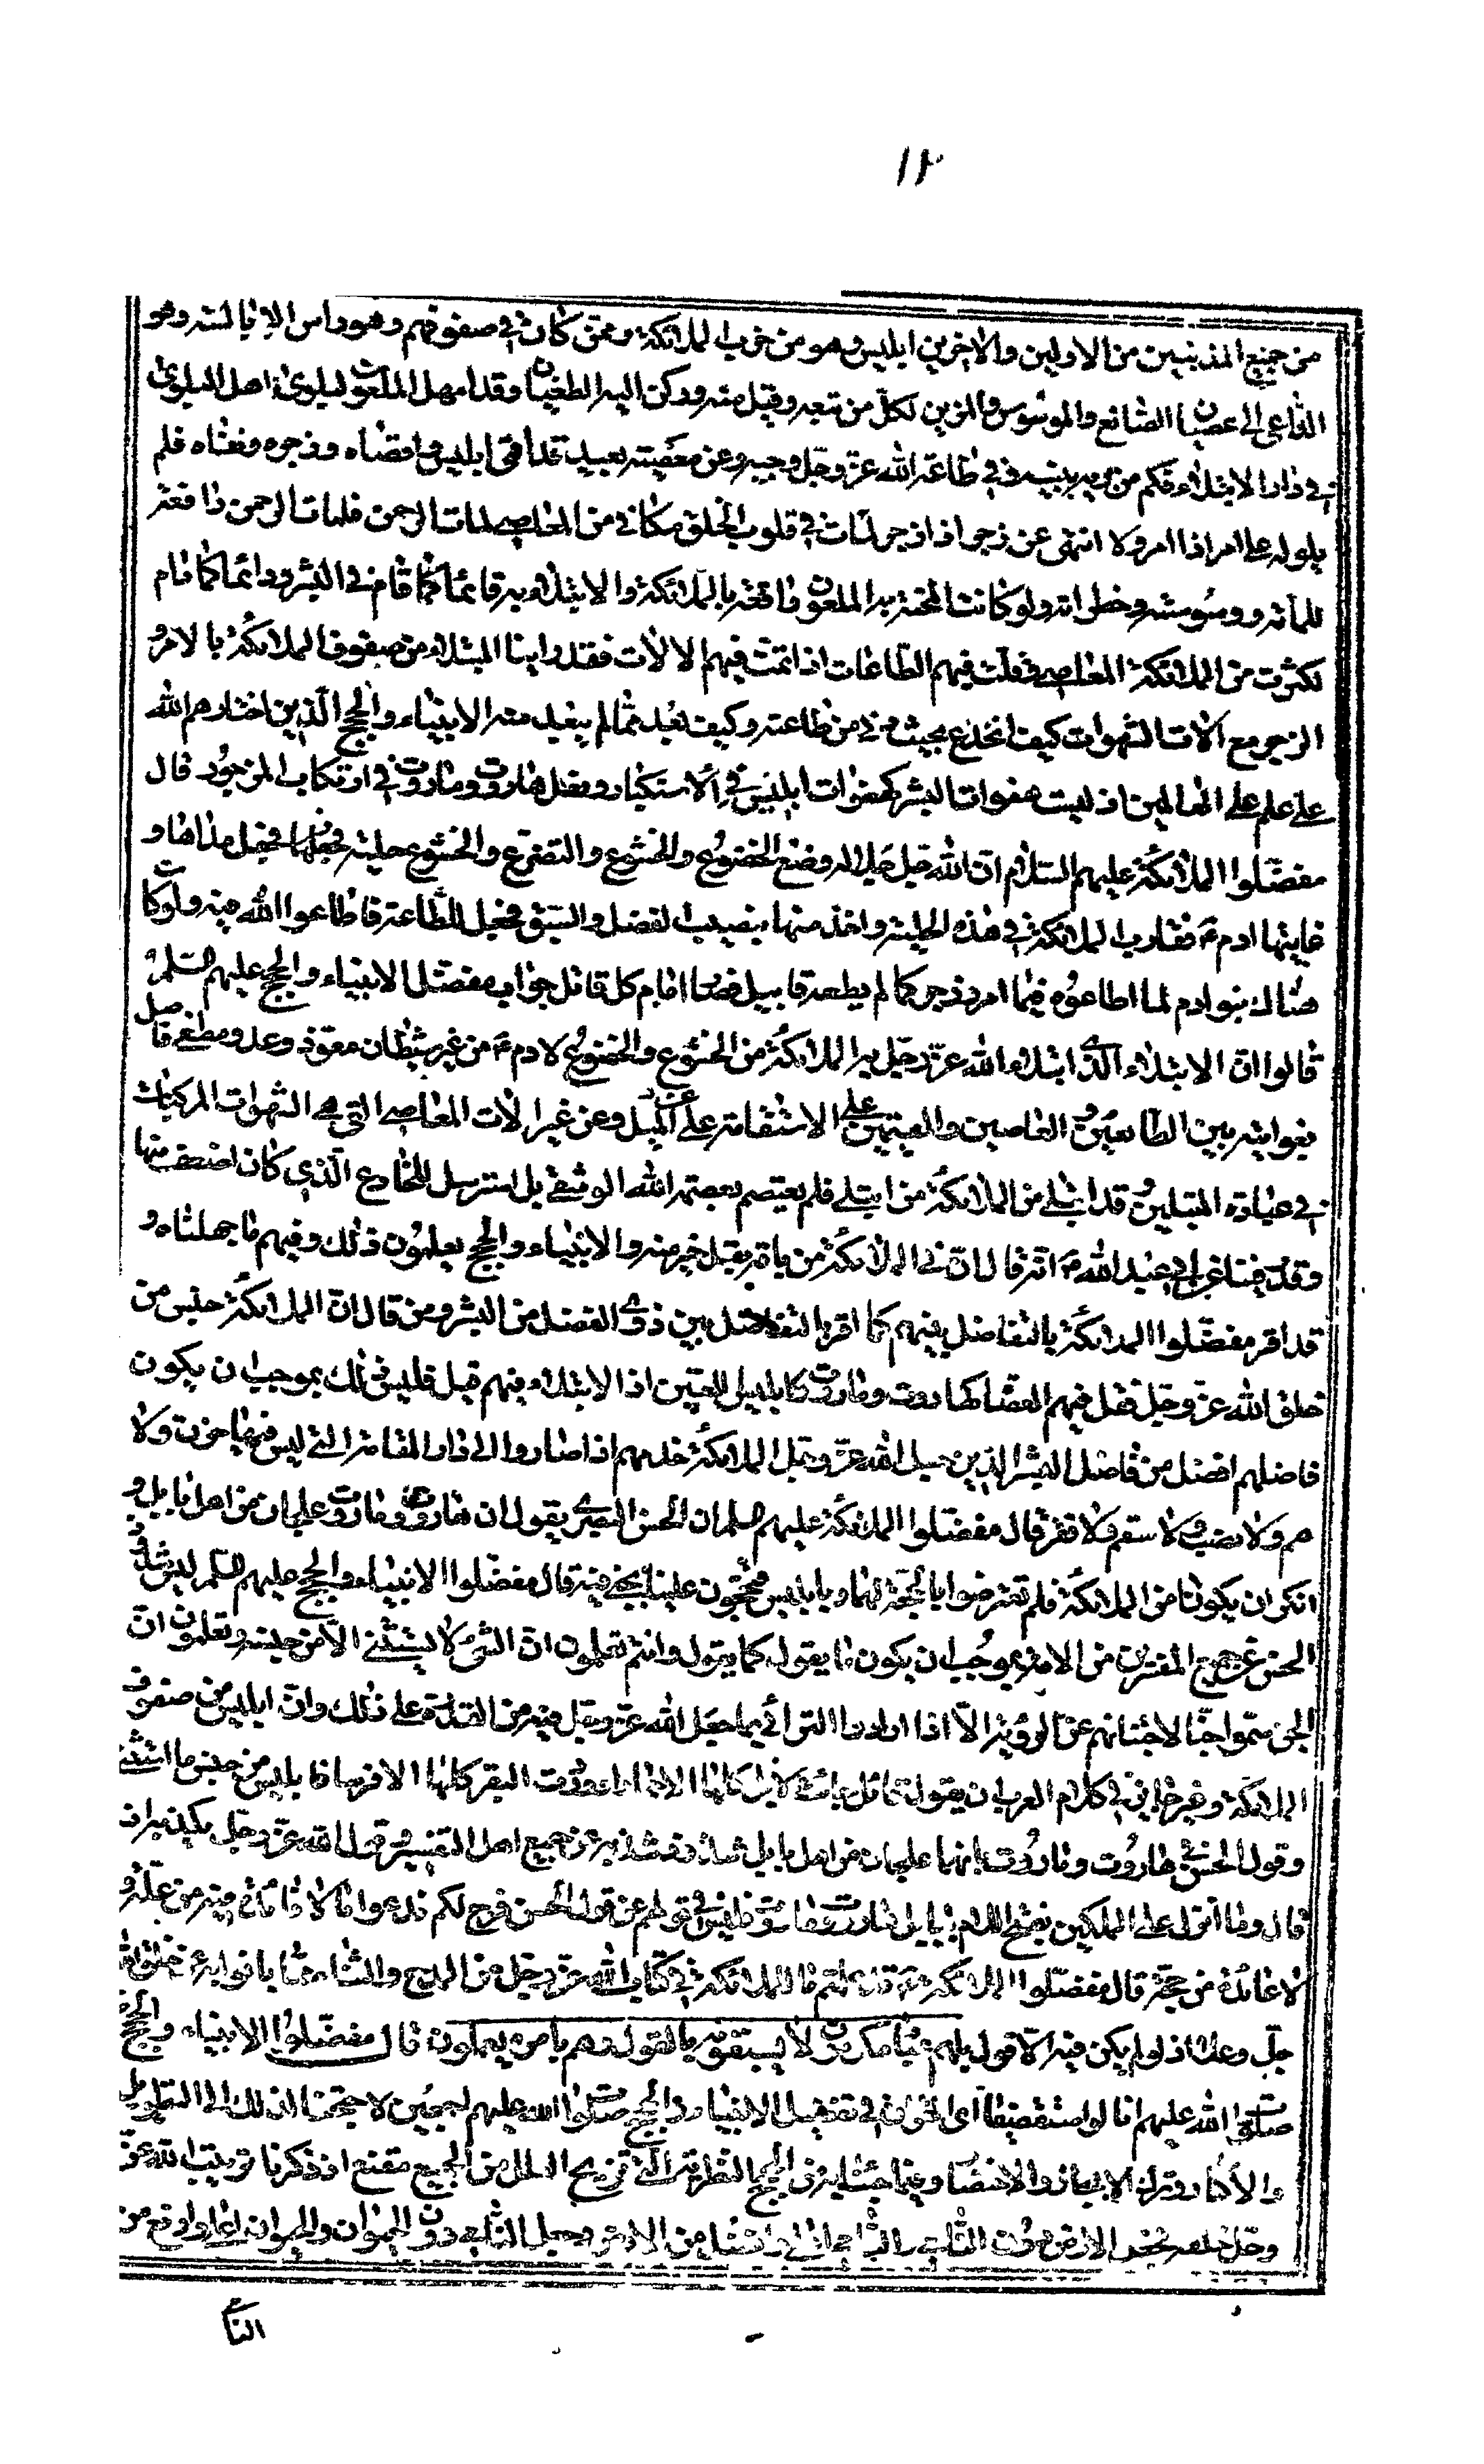 ١٢
من جميع المذنبين من الاولين والاخرين ابليس وهو من حزب الملائكة وممن كان في صفوفهم وهو راس الابالسة وهو
الداعي الى عصيان الصانع والموسوس والمزين لكل من تبعه وقبل منه وركن اليه الطغيان وقد امهل الملعون لبلوى اهل البلوى
في دار الابتلاء فكم من في طاعة الله عز وجل وجيه وعن معصيته بعيد قد اقمى ابليس واقصاه وزجره ونفاه فلم
يلو له على امر اذا امر ولا انتهى عن زجر اذا زجر لمات في قلوب الخلق مكافي من المعاصي لمات الرحمن فلمات الرحمن دافعة
للماته ووسوسته وخطراته ولو كانت المحنة بالملعون واقعة بالملائكة والابتلاء به قائما كما قام في البشر ودائما كما دام
لكثرت من الملائكة المعاصي وقلت فيهم الطاعات اذا تمت فيهم الالات فقد راينا المبتلى من صفوف الملائكة بالامر و
الزجر مع الات الشهوات كيف انخدع بحيث من طاعته وكيف بعد مما لم يبعد منه الانبياء والحجج الذين اختارهم الله
على علم على العالمين اذ ليست هفوات البشر كهفوات ابليس في الاستكبار وفعل هاروت وماروت في ارتكاب المزجور قال
مفضلوا الملائكة عليهم السلام ان الله جل جلاله وضع الخضوع والخشوع والتضرع والخنوع حلية فجعل مداها و
غايتها ادم ع فقارب الملائكة في هذه الحلية واخذ منها بنصيب الفضل والسبق فجعل للطاعة فاطاعوا الله فيه ولو كان
هناك بنو ادم لما اطاعوه فيما امر وزجر كما لم يطعه قابيل فصار امام كل قاتل جواب مفضل الانبياء والحجج عليهم السلم
قالوا ان الابتلاء الذي ابتلى الله عز وجل به الملائكة من الخشوع والخضوع لادم ع من غير شيطان مغو وعدو مطغي فاصل
بغوايته بين الطائعين والعاصين والمقيمين على الاستقامة على الميل وعن غير الات المعاصي التي هي الشهوات المركبات
في عباده المبتلين وقد ابتلى من الملائكة من ابتلى فلم يعتصم بعصمة الله الوثقى بل استرسل للخادع الذي كان اضعف منها
وقد روينا عن ابي عبد الله ع انه قال ان في الملائكة من باقة بقل خير منه والانبياء والحجج يعلمون ذلك وفيهم ما جهلناه و
قد اقر مفضلوا الملائكة بالتفاضل بينهم كما اقر بالتفاضل بين ذوي الفضل من البشر ومن قال ان الملائكة جنس من
خلق الله عز وجل فقل فيهم العصاة كهاروت وماروت وكابليس اللعين اذ الابتلاء فيهم قليل فليس ذلك بموجب ان يكون
فاضلهم افضل من فاضل البشر الذين جعل الله عز وجل الملائكة خدمهم اذا صاروا الى دار المقامة التي ليس فيها حزن ولا
هم ولا نصب ولا سقم ولا فقر قال مفضلوا الملائكة عليهم السلم ان الحسن البصري يقول ان هاروت وماروت علجان من اهل بابل و
انكر ان يكونا من الملائكة فلم تعترضوا بالحجة بهما وبابليس فتحتجون علينا بجني فيه قال مفضلوا الانبياء والحجج عليهم السلم ليس شذوذ
الحسن عن جميع المفسرين من الامة بموجب ان يكون ما يقول كما يقول وانتم تعلمون ان الشيء لا يستثنى الا من جنسه وتعلمون ان
الجن سموا جنا لاجتنانهم عن الرؤية الا اذا ارادوا الترائي بما جعل الله عز وجل فيهم من القدرة على ذلك وان ابليس من صفوف
الملائكة وغير جائز في كلام العرب ان يقول قائل جاءت الابل كلها الا حمارا ووردت البقر كلها الا فرسا فابليس من جنس ما استثنى
وقول الحسن في هاروت وماروت بانهما علجان من اهل بابل شذوذ شذ به عن جميع اهل التفسير وقول الله عز وجل يكذبه اذ
قال وما انزل على الملكين بفتح اللام ببابل هاروت وماروت فليس في قولكم عن قول الحسن فرج لكم فدعوا ما لا فائدة فيه من علة و
لا عائدة من حجة قال مفضلوا الملائكة ع قد علمتم ما للملائكة في كتاب الله عز وجل من المدح والثناء مما بانوا به عن خلق الله
جل وعلا اذ لو لم يكن فيه الا قوله بل هم عباد مكرمون لا يسبقونه بالقول وهم بامره يعملون قال مفضلوا الانبياء والحجج
صلوات الله عليهم انا لو استقصينا اي القران في تفضيل الانبياء والحجج صلوات الله عليهم اجمعين لاحتجنا لذلك الى التطويل
والاكثار وترك الايجاز والاختصار وفيما جئنا به من الحجج النظرية التي تزيح العلل من الجميع مقنع اذ ذكرنا ترتيب الله عز
وجل خلقه فجعل الارض دون النامي والنامي اعلى وافضل من الارض وجعل النامي دون الحيوان والحيوان اعلى وارفع من
النا